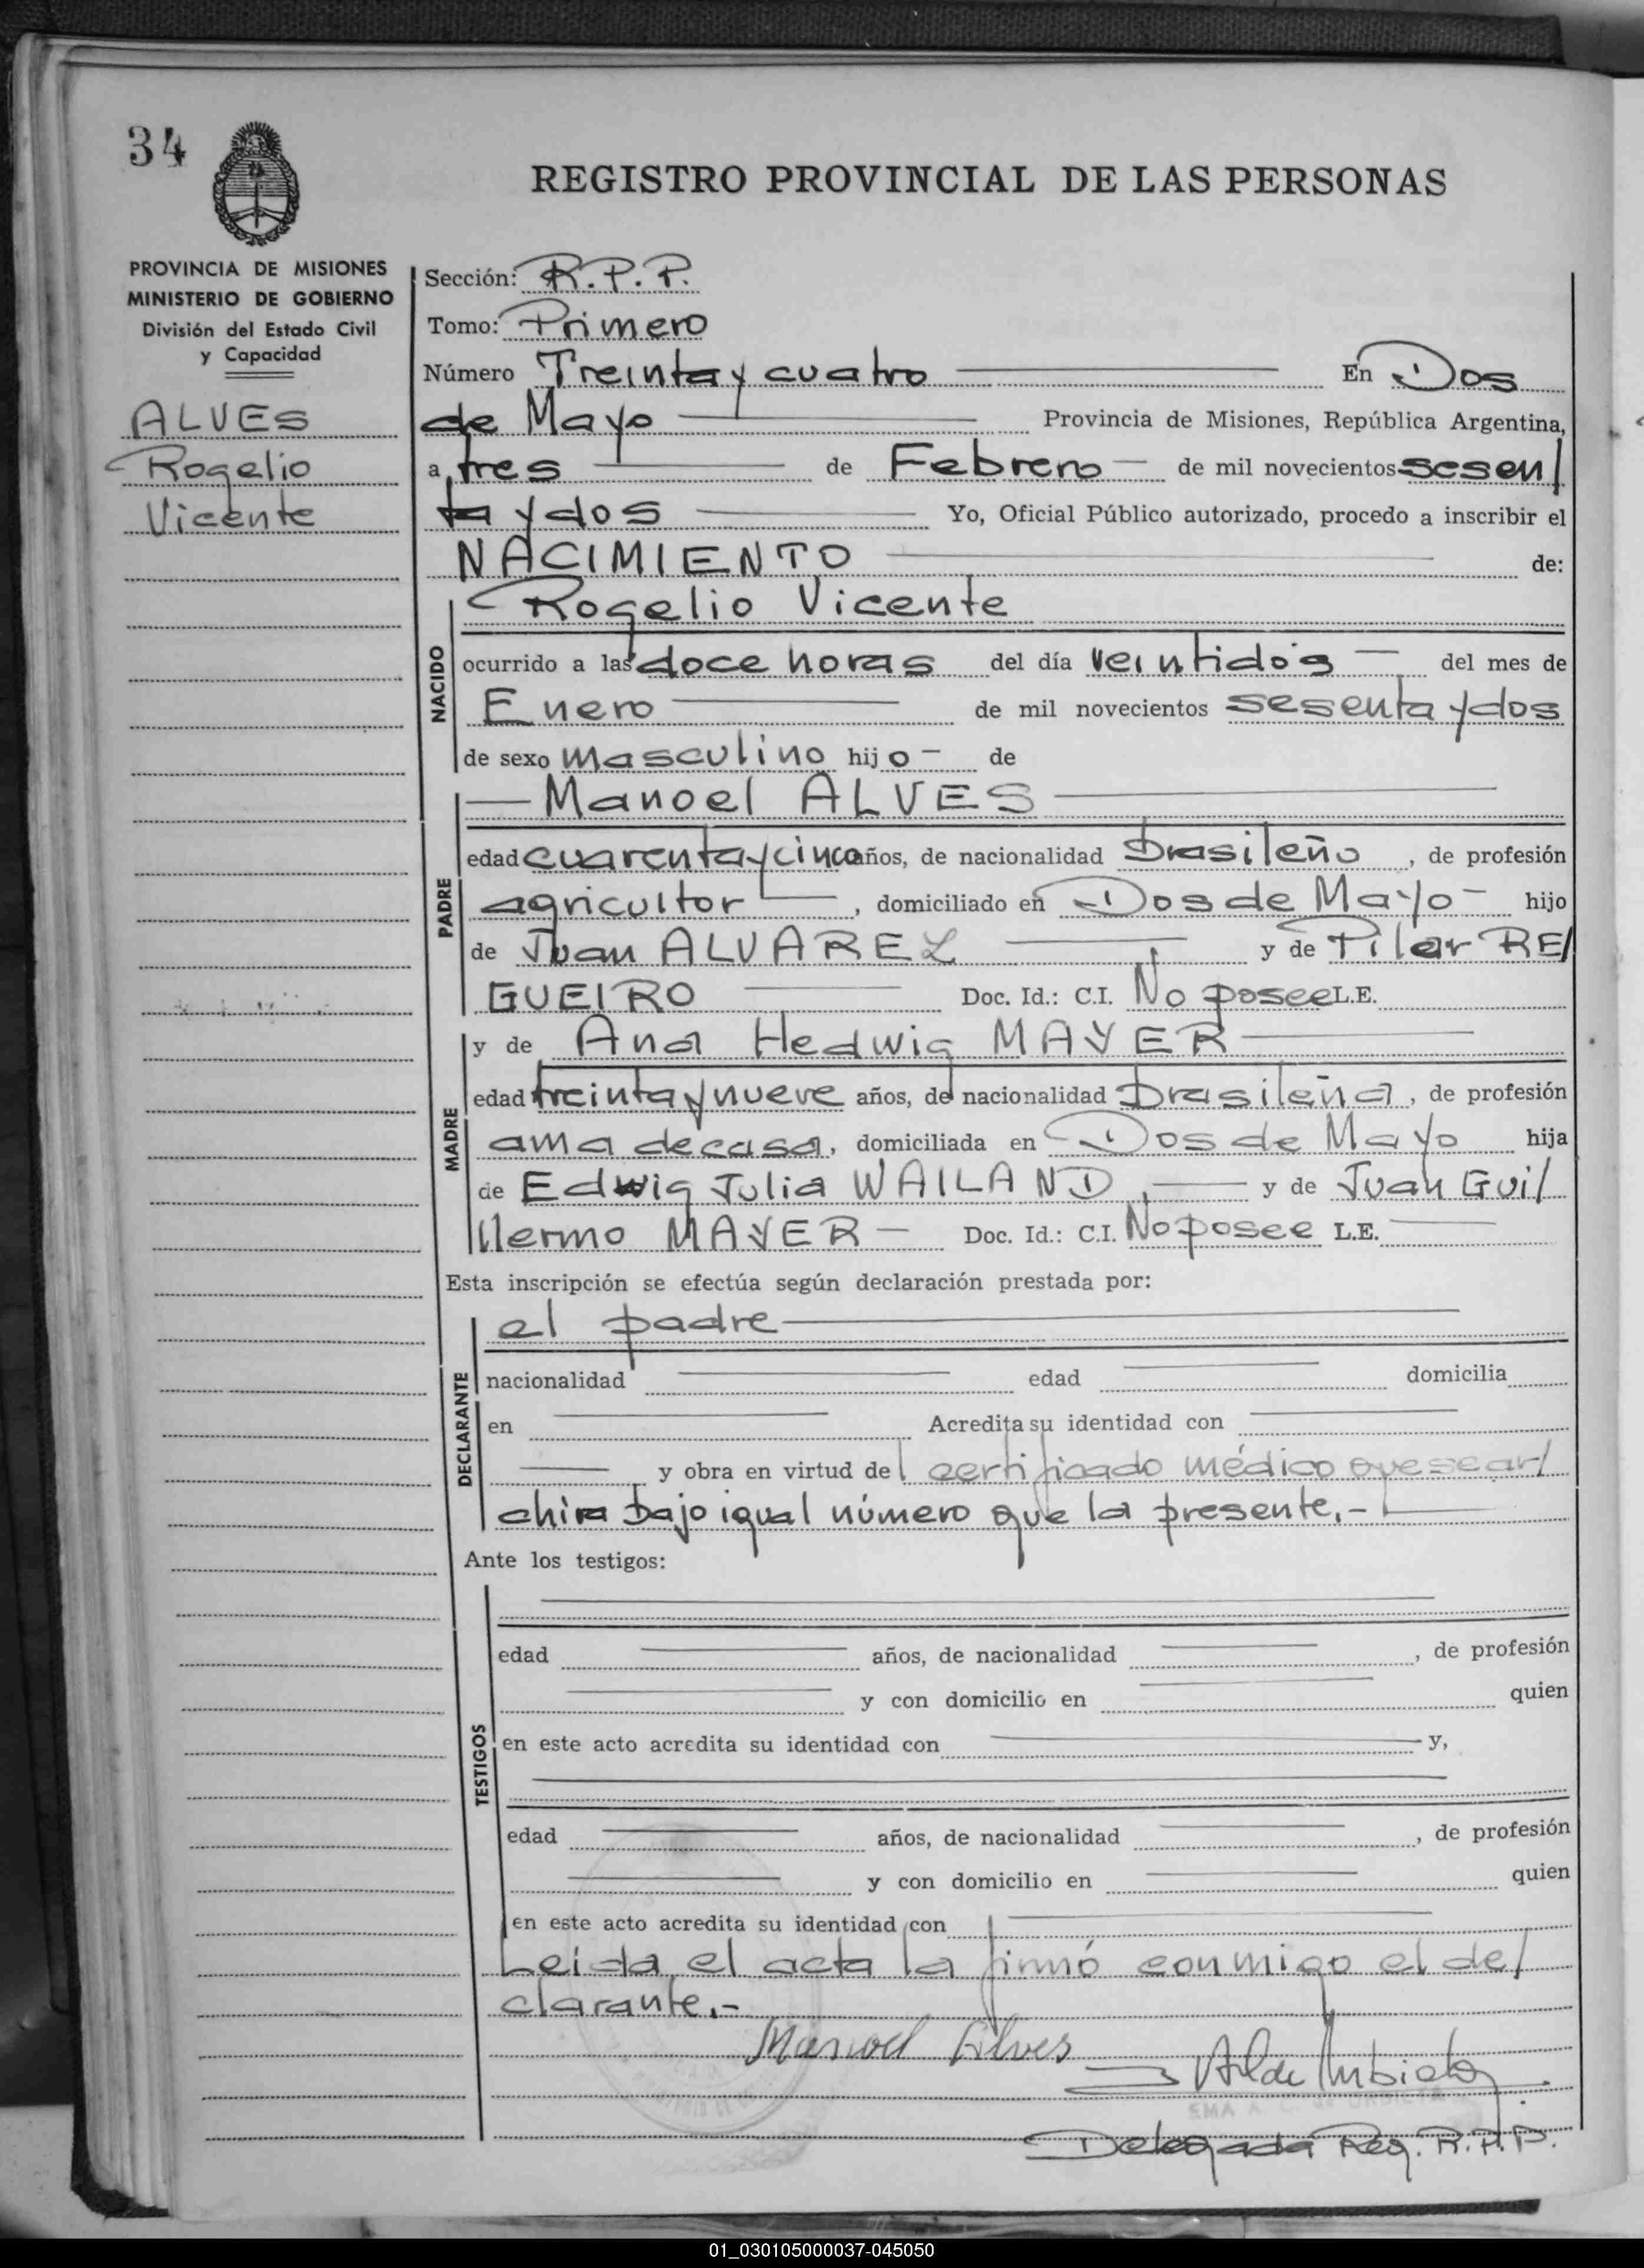 34
REGISTRO PROVINCIAL DE LAS PERSONAS
PROVINCIA DE MISIONES
MINISTERIO DE GOBIERNO
División del Estado Civil
y Capacidad
ALVES
Rogelio
Vicente
Sección: R.P.P.
Tomo: Primero
Número Treinta y cuatro En Dos
de Mayo Provincia de Misiones, República Argentina,
a tres de Febrero de mil novecientos sesen/
ta y dos Yo, Oficial Público autorizado, procedo a inscribir el
NACIMIENTO de:
NACIDO
Rogelio Vicente
ocurrido a las doce horas del día veintidós del mes de
Enero de mil novecientos sesenta y dos
de sexo masculino hijo de
PADRE
Manoel ALVES
edad cuarenta y cinco años, de nacionalidad brasileño, de profesión
agricultor, domiciliado en Dos de Mayo hijo
de Juan ALVAREZ y de Pilar RE/
GUEIRO Doc. Id.: C.I. No posee L.E.
MADRE
y de Ana Hedwig MAYER
edad treinta y nueve años, de nacionalidad brasileña, de profesión
ama de casa, domiciliada en Dos de Mayo hija
de Edwig Julia WAILAND, y de Juan Gui/
llermo MAYER Doc. Id.: C.I. No posee L.E.
Esta inscripción se efectúa según declaración prestada por:
DECLARANTE
el padre
nacionalidad edad domicilia
en Acredita su identidad con
y obra en virtud del certificado médico que se ar/
chiva bajo igual número que la presente.-
Ante los testigos:
TESTIGOS
edad años, de nacionalidad , de profesión
y con domicilio en quien
en este acto acredita su identidad con y,
edad años, de nacionalidad , de profesión
y con domicilio en quien
en este acto acredita su identidad con
Leída el acta la firmó conmigo el de/
clarante.-
Manoel Alves
Delegada Reg. R.P.P.
01_030105000037-045050